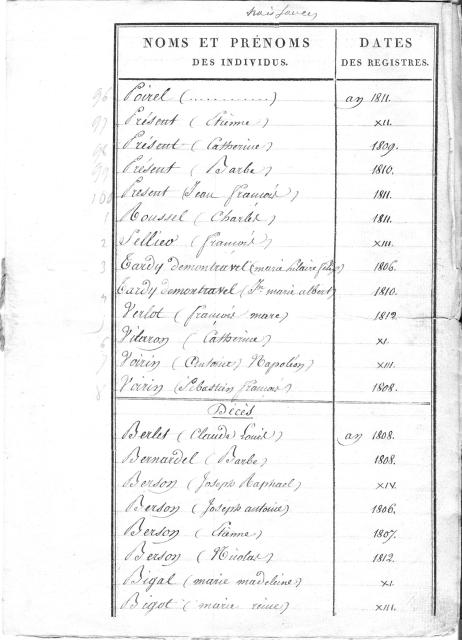 naissances
NOMS ET PRÉNOMS DES INDIVIDUS. DATES DES REGISTRES.
96 Poirel (............) an 1811.
97 Présent (Etienne) XII.
98 Présent (Catherine) 1809.
99 Présent (Barbe) 1810.
100 Présent (Jean françois) 1811.
1 Roussel (Charles) 1811.
2 (françois) XIII.
3 Tardy demontravel (marie hilaire) 1806.
4 Tardy demontravel (marie albert) 1810.
5 Verlot (françois marc) 1812.
6 (Catherine) XI.
7 Voirin (Antoine) Napoléon) XIII.
8 Voirin (Sébastien françois) 1808.
Décès
Berlet (Claude Louis) an 1808.
Bernardel (Barbe) 1808.
Berson (Joseph Raphael) XIV.
Berson (Joseph antoine) 1806.
Berson (Etienne) 1807.
Berson (Nicolas) 1812.
Bigal (marie madeleine) XI.
Bigot (marie reine) XIII.